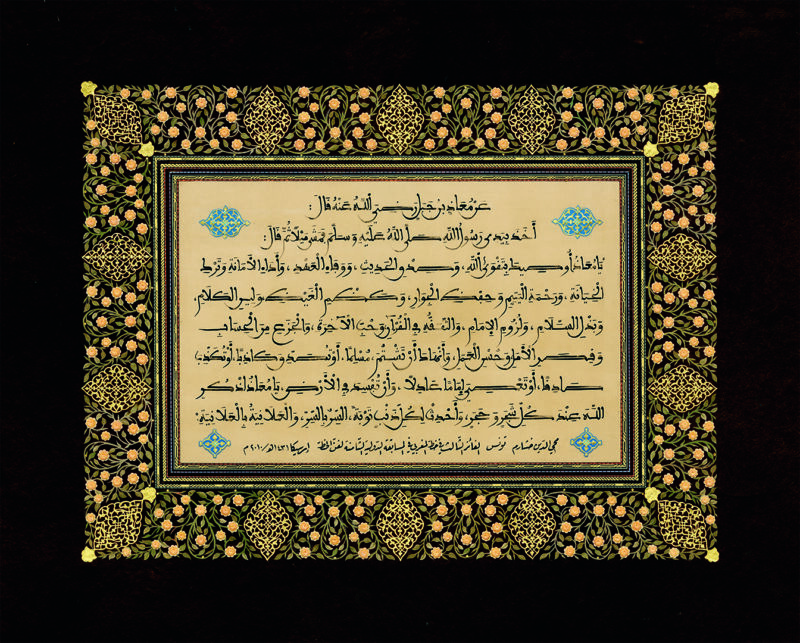 عَنْ مُعَاذِ بْنِ جَبَلٍ رَضِيَ اللَّهُ عَنْهُ قَالَ:
أَخَذَ بِيَدِي رَسُولُ اللَّهِ صَلَّى اللَّهُ عَلَيْهِ وَسَلَّمَ فَمَشَى مِيلًا ثُمَّ قَالَ:
يَا مُعَاذُ أُوصِيكَ بِتَقْوَى اللَّهِ، وَصِدْقِ الْحَدِيثِ، وَوَفَاءِ الْعَهْدِ، وَأَدَاءِ الْأَمَانَةِ وَتَرْكِ
الْخِيَانَةِ، وَرَحْمَةِ الْيَتِيمِ وَحِفْظِ الْجِوَارِ، وَكَظْمِ الْغَيْظِ، وَلِينِ الْكَلَامِ،
وَبَذْلِ السَّلَامِ، وَلُزُومِ الْإِمَامِ، وَالتَّفَقُّهِ فِي الْقُرْآنِ وَحُبِّ الْآخِرَةِ، وَالْجَزَعِ مِنَ الْحِسَابِ
وَقِصَرِ الْأَمَلِ وَحُسْنِ الْعَمَلِ، وَأَنْهَاكَ أَنْ تَشْتُمَ مُسْلِمًا، أَوْ تُصَدِّقَ كَاذِبًا، أَوْ تُكَذِّبَ
صَادِقًا، أَوْ تَعْصِيَ إِمَامًا عَادِلًا، وَأَنْ تُفْسِدَ فِي الْأَرْضِ، يَا مُعَاذُ اذْكُرِ
اللَّهَ عِنْدَ كُلِّ شَجَرٍ وَحَجَرٍ، وَأَحْدِثْ لِكُلِّ ذَنْبٍ تَوْبَةً، السِّرُّ بِالسِّرِّ، وَالْعَلَانِيَةُ بِالْعَلَانِيَةِ:
محي الدين خشارم تونس المسابقة الدولية الثامنة لفن الخط ١٤٣١هـ/٢٠١٠م